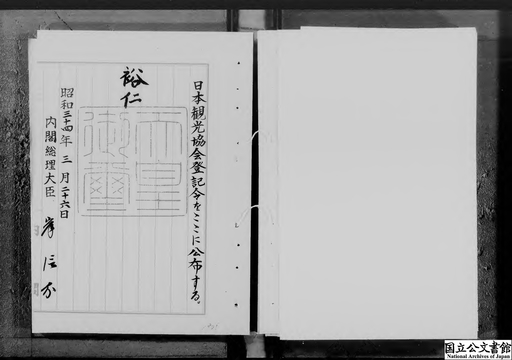 日本観光協会登記令をここに公布する。
裕仁
天皇
御璽
昭和三十四年三月二十六日
内閣総理大臣 岸信介
国立公文書館
National Archives of Japan